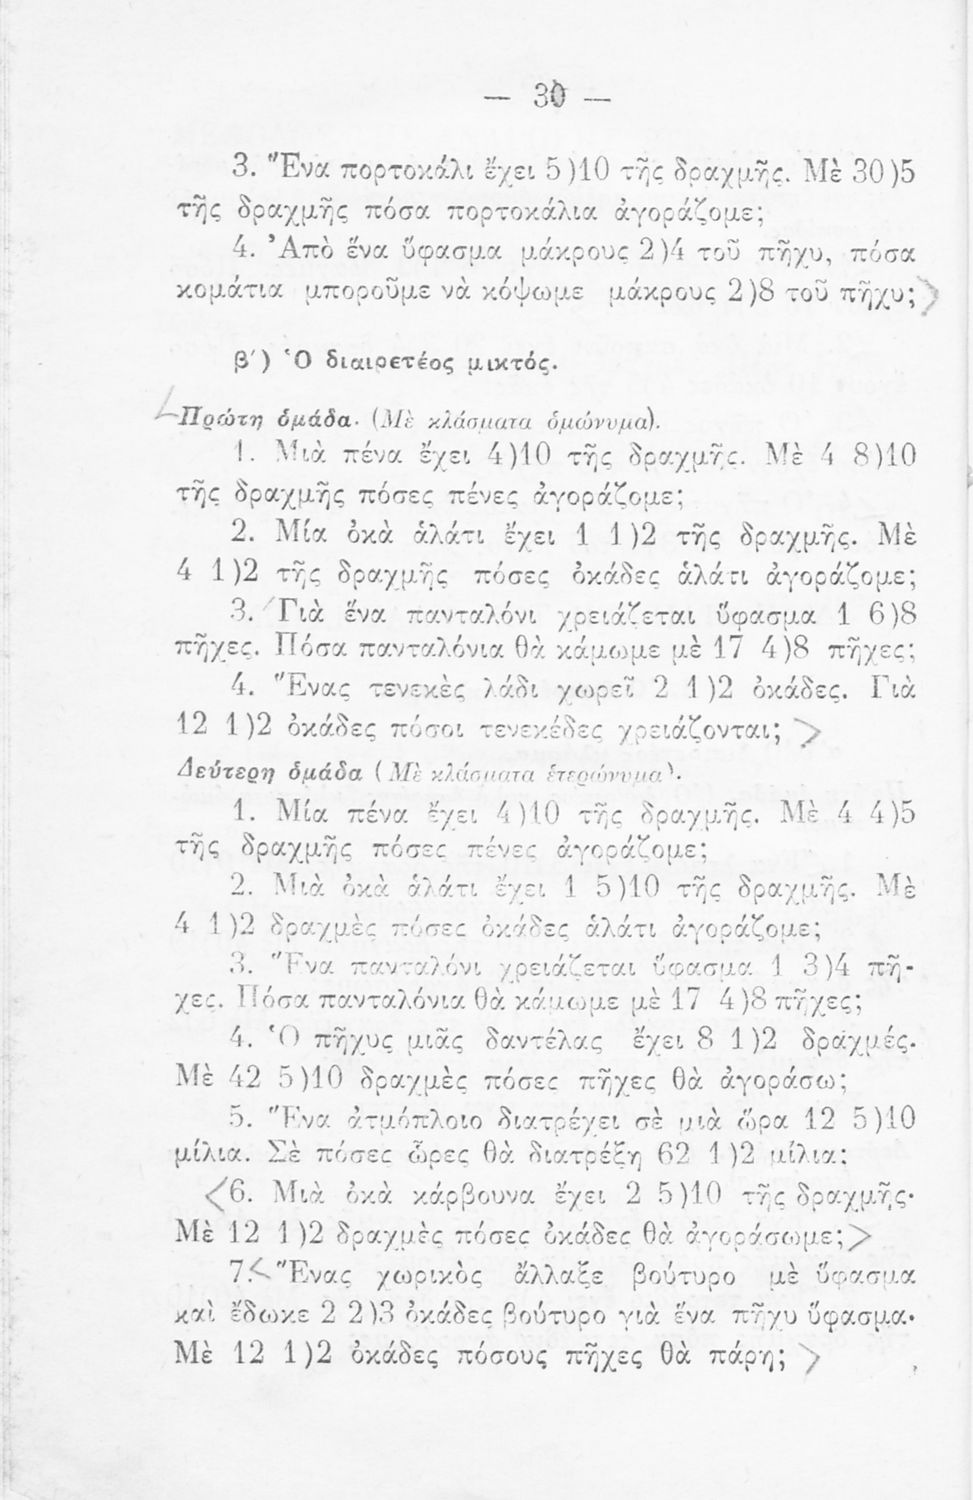 — 30 —
3. Ἕνα πορτοκάλι ἔχει 5)10 τῆς δραχμῆς. Μὲ 30)5
τῆς δραχμῆς πόσα πορτοκάλια ἀγοράζομε;
4. Ἀπὸ ἕνα ὕφασμα μάκρους 2)4 τοῦ πῆχυ, πόσα
κομάτια μποροῦμε νὰ κόψωμε μάκρους 2)8 τοῦ πῆχυ;
β΄) Ὁ διαιρετέος μικτός.
Πρώτη ὁμάδα. (Μὲ κλάσματα ὁμώνυμα).
1. Μιὰ πένα ἔχει 4)10 τῆς δραχμῆς. Μὲ 4 8)10
τῆς δραχμῆς πόσες πένες ἀγοράζομε;
2. Μία ὀκὰ ἁλάτι ἔχει 1 1)2 τῆς δραχμῆς. Μὲ
4 1)2 τῆς δραχμῆς πόσες ὀκάδες ἁλάτι ἀγοράζομε;
3. Γιὰ ἕνα πανταλόνι χρειάζεται ὕφασμα 1 6)8
πῆχες. Πόσα πανταλόνια θὰ κάμωμε μὲ 17 4)8 πῆχες;
4. Ἕνας τενεκὲς λάδι χωρεῖ 2 1)2 ὀκάδες. Γιὰ
12 1)2 ὀκάδες πόσοι τενεκέδες χρειάζονται;
Δεύτερη ὁμάδα (Μὲ κλάσματα ἑτερώνυμα).
1. Μία πένα ἔχει 4)10 τῆς δραχμῆς. Μὲ 4 4)5
τῆς δραχμῆς πόσες πένες ἀγοράζομε;
2. Μιὰ ὀκὰ ἁλάτι ἔχει 1 5)10 τῆς δραχμῆς. Μὲ
4 1)2 δραχμὲς πόσες ὀκάδες ἁλάτι ἀγοράζομε;
3. Ἕνα πανταλόνι χρειάζεται ὕφασμα 1 3)4 πῆ-
χες. Πόσα πανταλόνια θὰ κάμωμε μὲ 17 4)8 πῆχες;
4. Ὁ πῆχυς μιᾶς δαντέλας ἔχει 8 1)2 δραχμές.
Μὲ 42 5)10 δραχμὲς πόσες πῆχες θὰ ἀγοράσω;
5. Ἕνα ἀτμόπλοιο διατρέχει σὲ μιὰ ὥρα 12 5)10
μίλια. Σὲ πόσες ὧρες θὰ διατρέξη 62 1)2 μίλια;
6. Μιὰ ὀκὰ κάρβουνα ἔχει 2 5)10 τῆς δραχμῆς.
Μὲ 12 1)2 δραχμὲς πόσες ὀκάδες θὰ ἀγοράσωμε;
7. Ἕνας χωρικὸς ἄλλαξε βούτυρο μὲ ὕφασμα
καὶ ἔδωκε 2 2)3 ὀκάδες βούτυρο γιὰ ἕνα πῆχυ ὕφασμα.
Μὲ 12 1)2 ὀκάδες πόσους πῆχες θὰ πάρη;